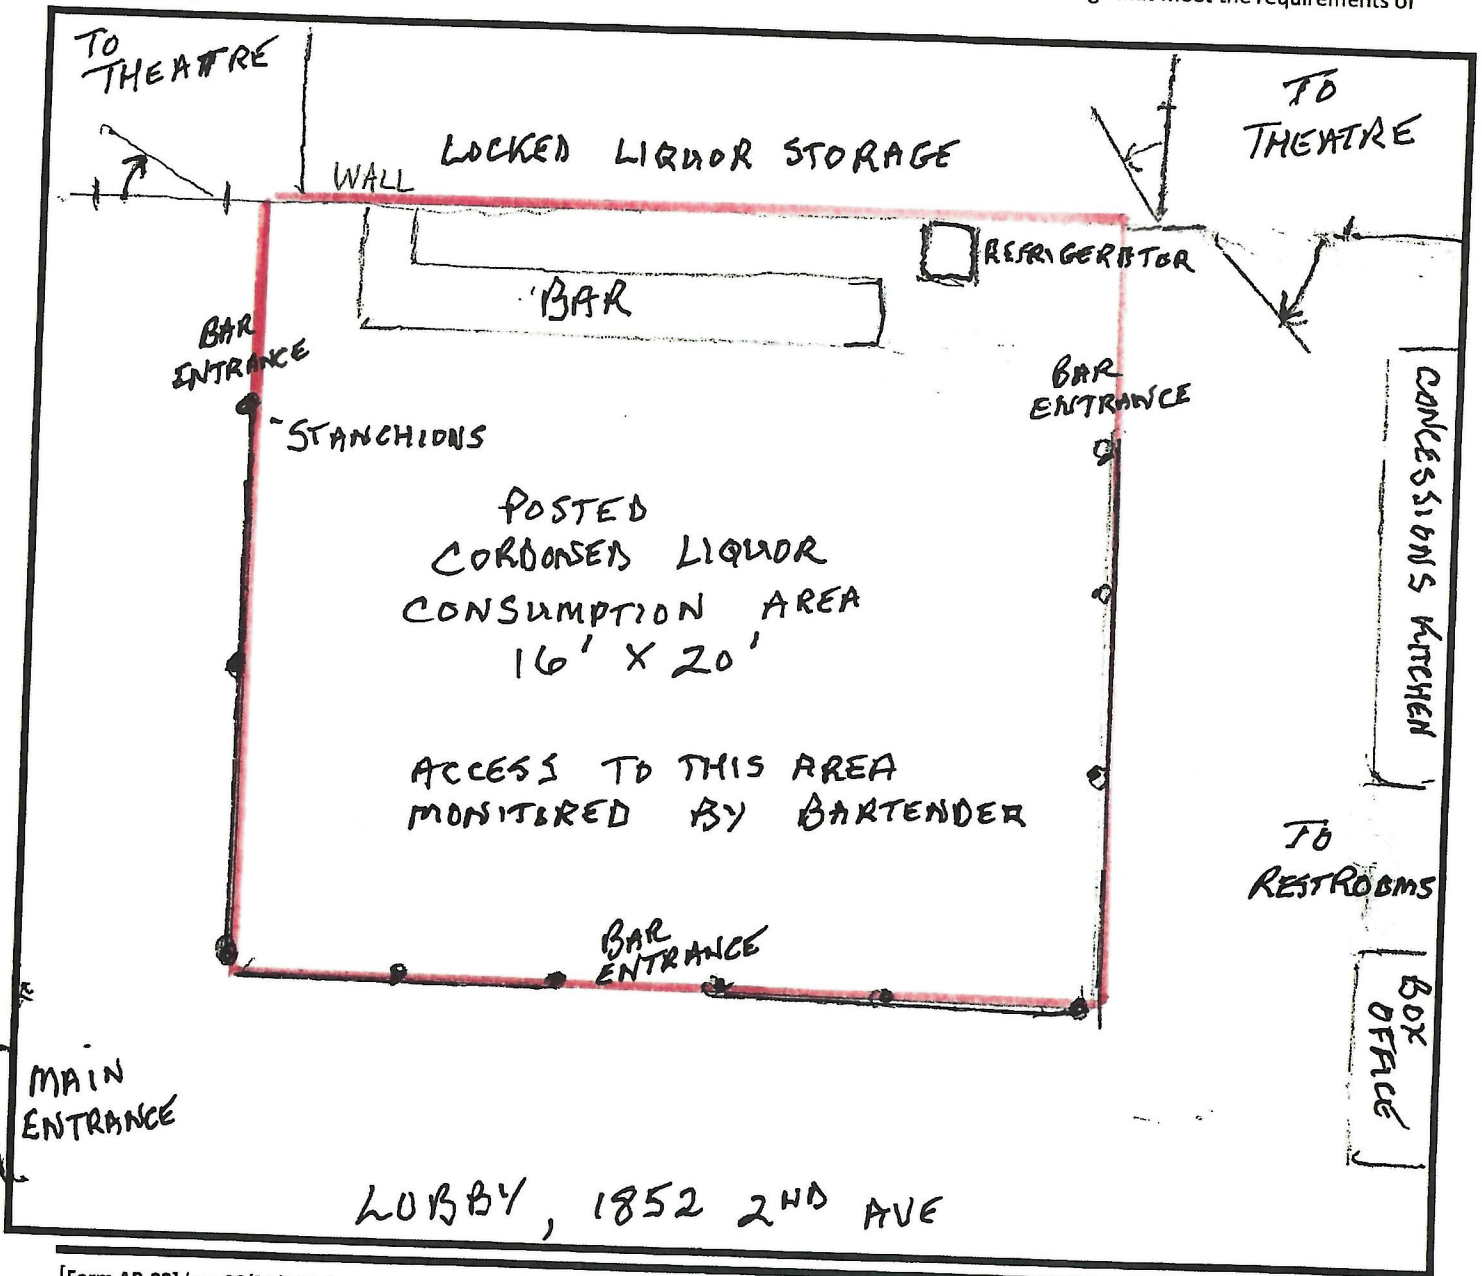 meet the requirements of
TO
THEATRE
LOCKED LIQUOR STORAGE
TO
THEATRE
WALL
REFRIGERATOR
BAR
BAR
ENTRANCE
BAR
ENTRANCE
STANCHIONS
CONCESSIONS KITCHEN
POSTED
CORDONED LIQUOR
CONSUMPTION AREA
16' X 20'
ACCESS TO THIS AREA
MONITORED BY BARTENDER
TO
RESTROOMS
BAR
ENTRANCE
BOX
OFFICE
MAIN
ENTRANCE
LOBBY, 1852 2ND AVE